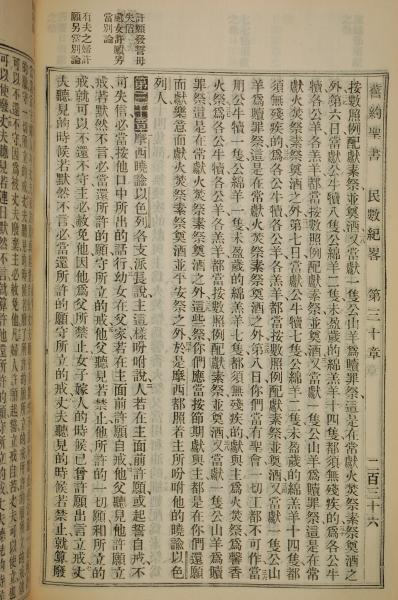 舊約聖書 民數紀畧 第三十章 二百三十六
按數照例配獻素祭並奠酒又當獻一隻公山羊爲贖罪祭這是在常獻火焚祭素祭奠酒之
外第六日當獻公牛犢八隻公綿羊二隻未盈歲的綿羊羔十四隻都須無殘疾的爲各公牛
犢各公羊各羔羊都當按數照例配獻素祭並奠酒又當獻一隻公山羊爲贖罪祭這是在常
獻火焚祭素祭奠酒之外第七日當獻公牛犢七隻公綿羊二隻未盈歲的綿羊羔十四隻都
須無殘疾的爲各公牛犢各公羊各羔羊都當按數照例配獻素祭並奠酒又當獻一隻公山
羊爲贖罪祭這是在常獻火焚祭素祭奠酒之外第八日你們當有聖會一切工都不可作當
用公牛犢一隻公綿羊一隻未盈歲的綿羊羔七隻都須無殘疾的獻與主爲火焚祭爲馨香
火祭爲各公牛犢各公羊各羔羊都當按數照例配獻素祭並奠酒又當獻一隻公山羊爲贖
罪祭這是在常獻火焚祭素祭奠酒之外這些祭你們應當按節期獻與主都是在你們還願
而獻樂意而獻火焚祭素祭奠酒並平安祭之外於是摩西都照着主所吩咐他的曉諭以色
列人
第三十章摩西曉諭以色列各支派長說主這樣吩咐說人若在主面前許願或起誓自戒不
可失信必當按他口中所出的話行幼女在父家若在主面前許願自戒他父聽見他許願立
戒若默然不言必當還所許的願守所立的戒他父聽見若禁止他所許的一切願和所立的
戒就可以不還不守主必赦免他因他爲父所禁止女子嫁人的時候已曾許願出言立戒丈
夫聽見的時候若默然不言必當還所許的願守所立的戒丈夫聽見的時候若禁止就算廢
許願發誓毋
失信
處女許願另
當別論
有夫之婦許
願另當別論